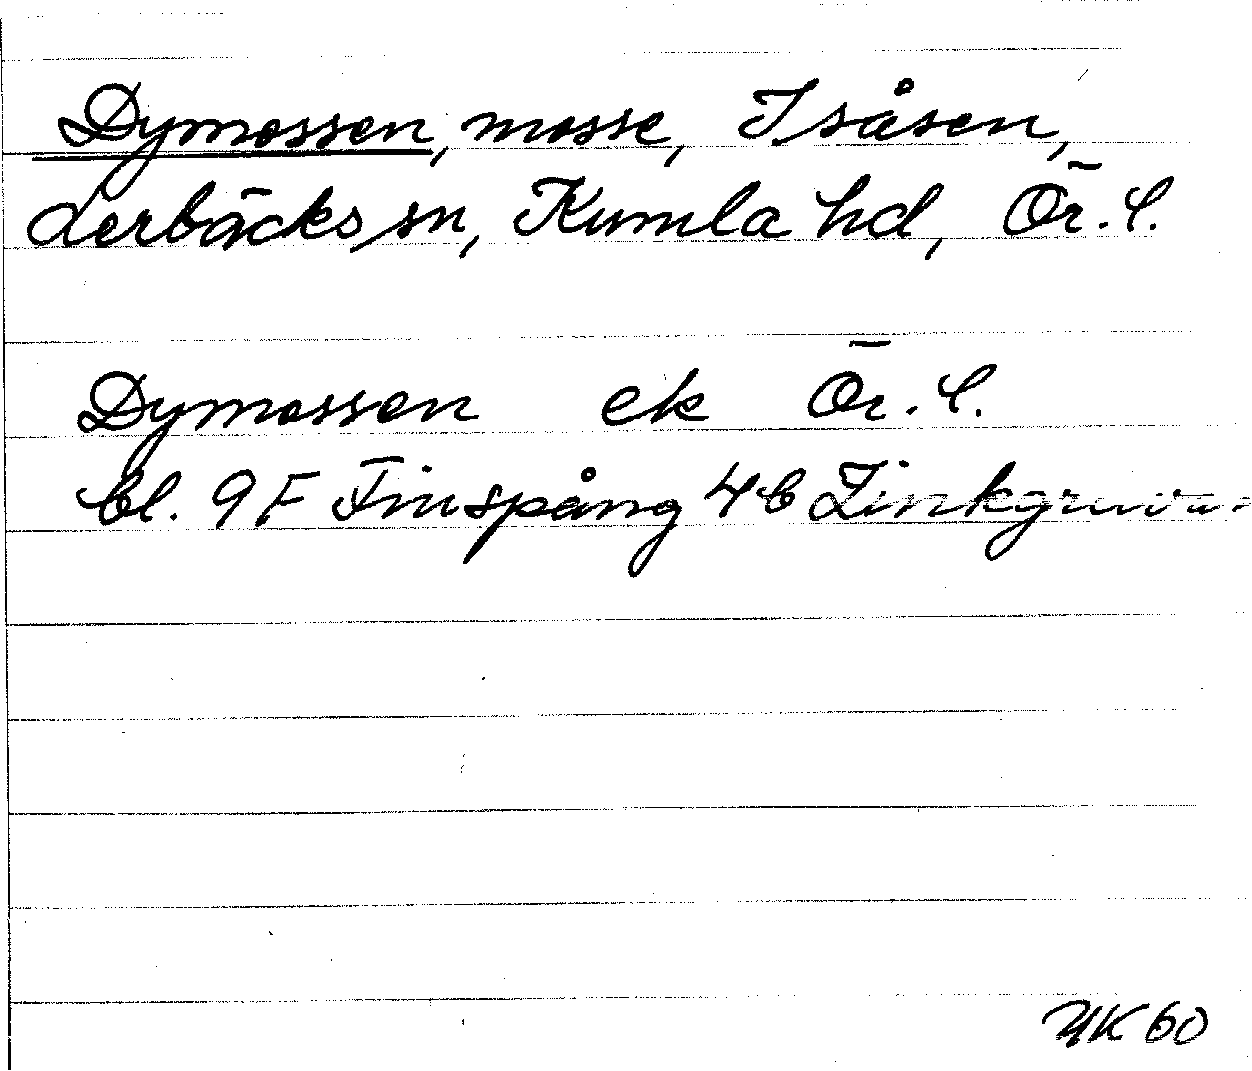 Dymossen, mosse, Isåsen,
Lerbäcks sn, Kumla hd, Ör. l.
Dymossen ek Ör. l.
bl. 9 F Finspång 4 b Zinkgruvan
UK 60